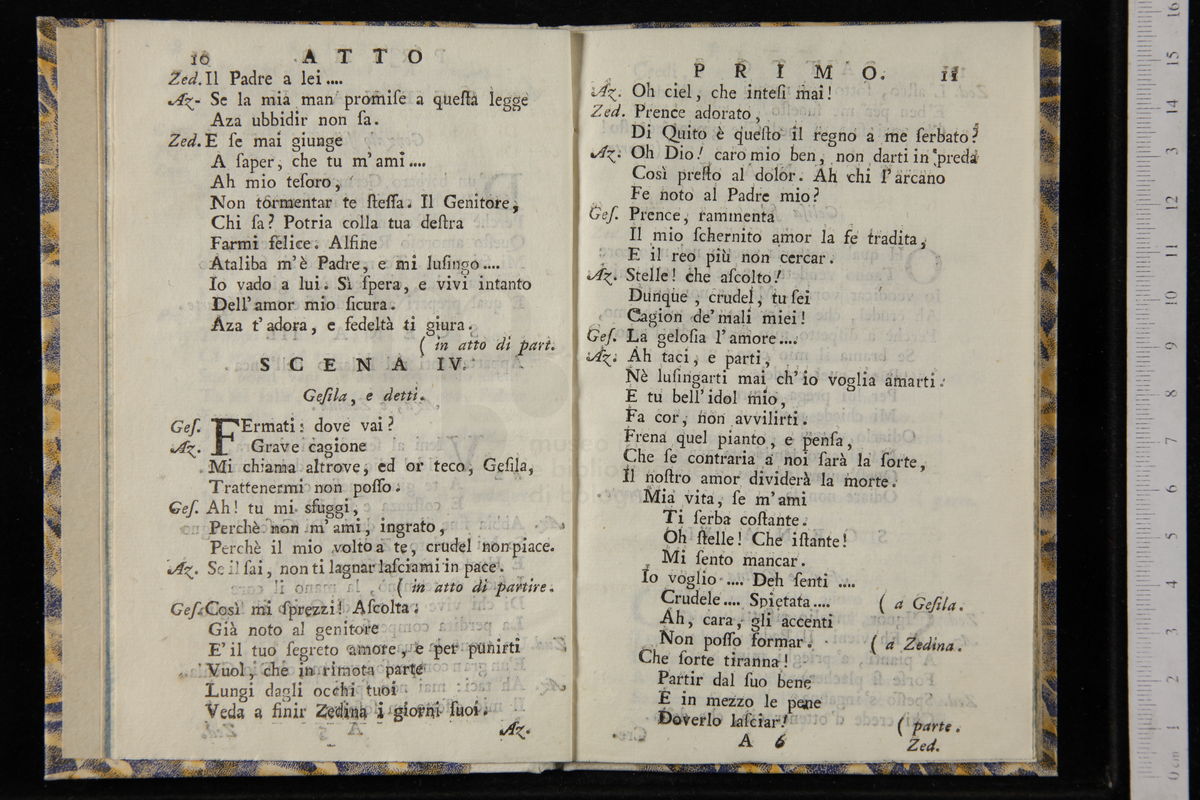 10 ATTO
Zed. Il Padre a lei....
Az. Se la mia man promiſe a queſta legge
Aza ubbidir non ſa.
Zed. E ſe mai giunge
A ſaper, che tu m'ami....
Ah mio teſoro,
Non tormentar te ſteſſa. Il Genitore,
Chi ſa? Potria colla tua deſtra
Farmi felice. Alfine
Ataliba m'è Padre, e mi luſingo....
Io vado a lui. Sì ſpera, e vivi intanto
Dell'amor mio ſicura.
Aza t'adora, e fedeltà ti giura.
( in atto di part.
SCENA IV.
Geſila, e detti.
Geſ. FErmati: dove vai?
Az. Grave cagione
Mi chiama altrove, ed or teco, Geſila,
Trattenermi non poſſo.
Geſ. Ah! tu mi sfuggi,
Perchè non m'ami, ingrato,
Perchè il mio volto a te, crudel non piace.
Az. Se il ſai, non ti lagnar laſciami in pace.
( in atto di partire.
Geſ. Così mi ſprezzi! Aſcolta.
Già noto al genitore
E' il tuo ſegreto amore, e per punirti
Vuol, che in rimota parte
Lungi dagli occhi tuoi
Veda a finir Zedina i giorni ſuoi.
Az.
PRIMO. 11
Az. Oh ciel, che inteſi mai!
Zed. Prence adorato,
Di Quito è queſto il regno a me ſerbato?
Az. Oh Dio! caro mio ben, non darti in preda
Così preſto al dolor. Ah chi l'arcano
Fe noto al Padre mio?
Geſ. Prence, rammenta
Il mio ſchernito amor la fe tradita,
E il reo più non cercar.
Az. Stelle! che aſcolto!
Dunque, crudel, tu ſei
Cagion de'mali miei!
Geſ. La geloſia l'amore....
Az. Ah taci, e parti,
Nè luſingarti mai ch'io voglia amarti.
E tu bell'idol mio,
Fa cor, non avvilirti.
Frena quel pianto, e penſa,
Che ſe contraria a noi ſarà la ſorte,
Il noſtro amor dividerà la morte.
Mia vita, ſe m'ami
Ti ſerba coſtante.
Oh ſtelle! Che iſtante!
Mi ſento mancar.
Io voglio .... Deh ſenti ....
Crudele.... Spietata.... ( a Geſila.
Ah, cara, gli accenti
Non poſſo formar. ( a Zedina.
Che ſorte tiranna!
Partir dal ſuo bene
E in mezzo le pene
Doverlo laſciar! ( parte.
A 6 Zed.